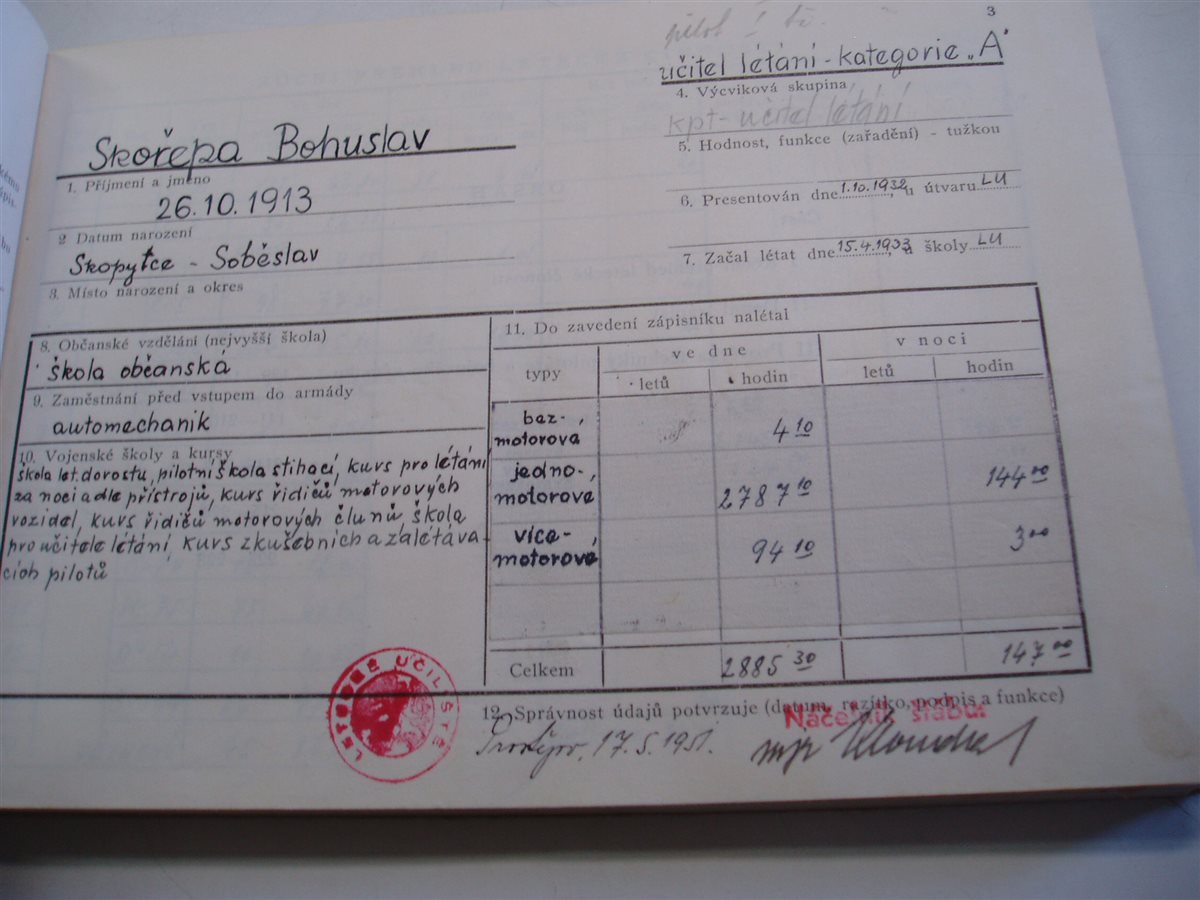 3
pilot I. tř.
učitel létání - kategorie „A"
4. Výcviková skupina
kpt - učitel létání
5. Hodnost, funkce (zařadění) - tužkou
Skořepa Bohuslav
1. Příjmení a jméno
26.10.1913
2 Datum narození
Skopytce - Soběslav
3. Místo narození a okres
6. Presentován dne 1.10.1932, u útvaru LU
7. Začal létat dne 15.4.1933, u školy LU
8. Občanské vzdělání (nejvyšší škola)
škola občanská
9. Zaměstnání před vstupem do armády
automechanik
10. Vojenské školy a kursy
škola let. dorostu, pilotní škola stíhací, kurs pro létání
za noci a dle přístrojů, kurs řidičů motorových
vozidel, kurs řidičů motorových člunů, škola
pro učitele létání, kurs zkušebních a zalétáva-
cích pilotů
11. Do zavedení zápisníku nalétal
typy ve dne v noci
letů hodin letů hodin
bez-,
motorova 4 10
jedno-,
motorove 2787 10 144 00
více-,
motorove 94 10 3 00
Celkem 2885 30 147 00
12. Správnost údajů potvrzuje (datum, razítko, podpis a funkce)
LETECKÉ UČILIŠTĚ
Náčelník štábu:
17.5.1951. mjr